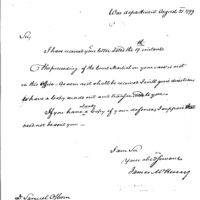 War department August 21. 1799
Sir,
I have received your letter dated the 19 instant
The proceeding of the Court Martial on your case is not
in this office. As soon as it shall be received I will give directions
to have a Copy made out and transmitted to you.
If you have already a Copy of your defence, I suppose
will not be sent you
I am Sir
Your obt Servant
James McHenry
Dr Samuel Osborn